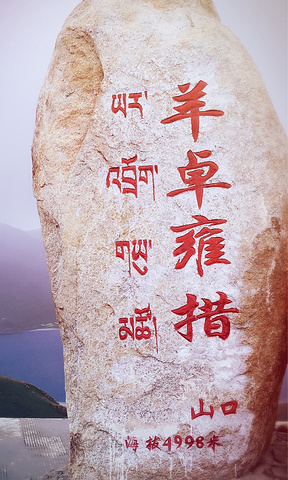 ཡར་
འབྲོག་
གཡུ་
མཚོ།
羊卓雍措
山口
海拔4998米